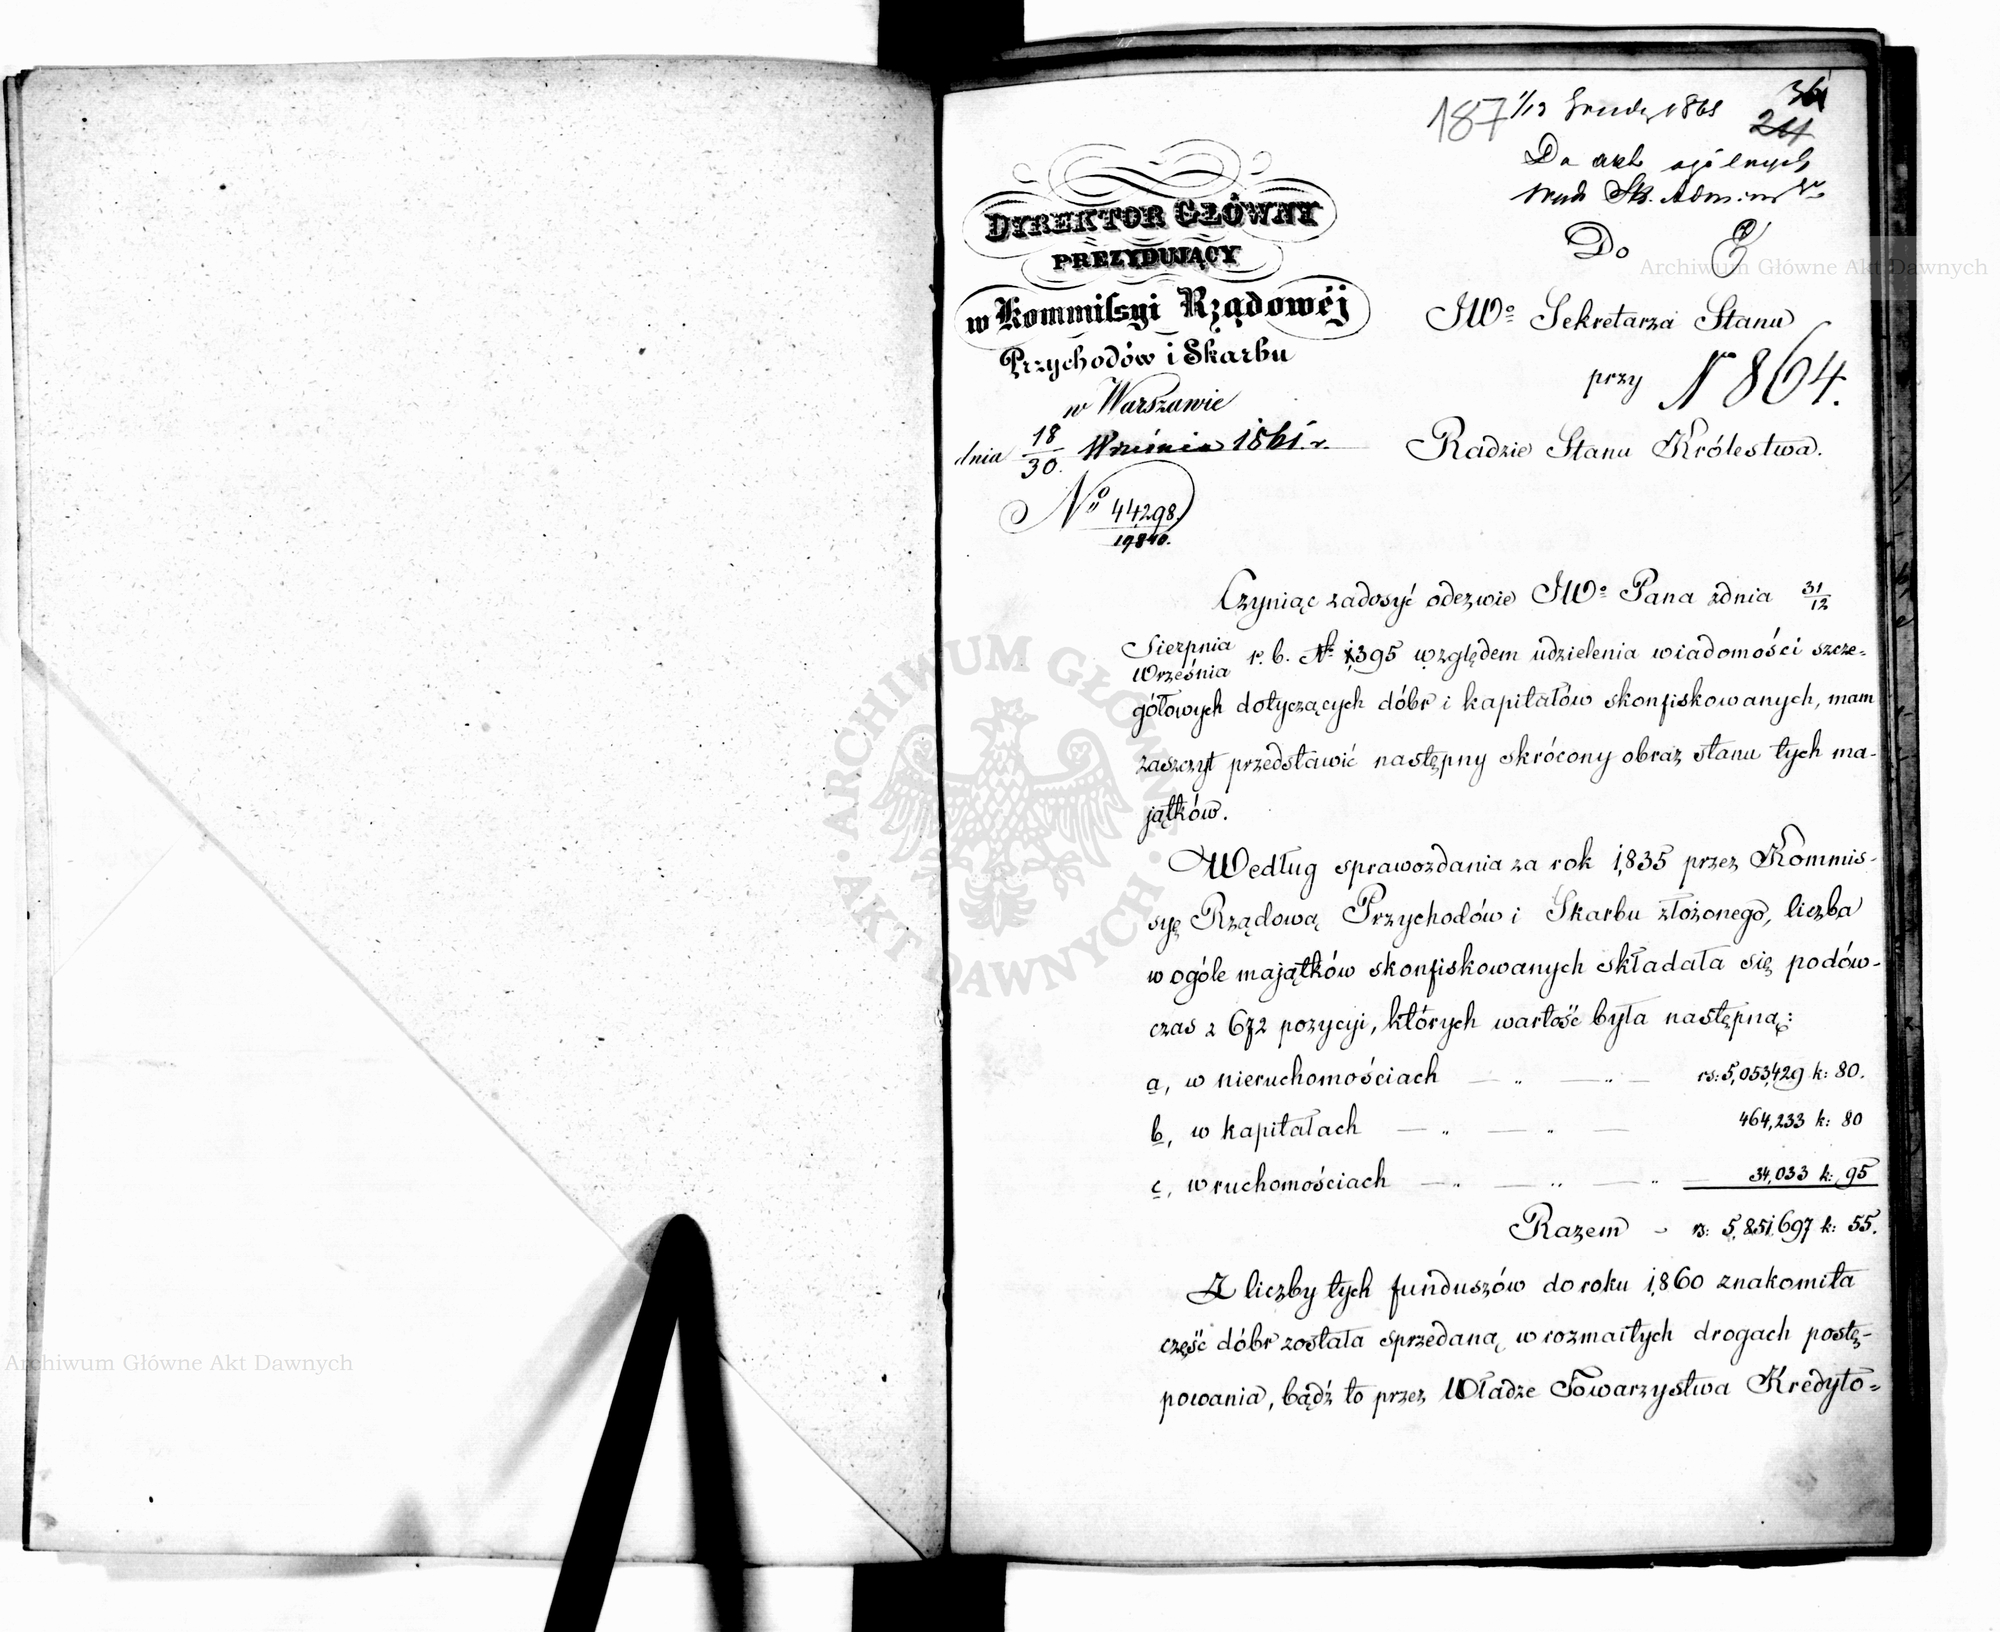 187
1/13 Grudz. 1861
36
24
Do akt ogólnych
DYREKTOR GŁÓWNY
PREZYDUJĄCY
w Kommissyi Rządowéj
Przychodów i Skarbu
w Warszawie
dnia 18/30 Września 1861. r.
No 44298.
19840.
Do
JWo Sekretarza Stanu
przy N 864.
Radzie Stanu Królestwa.
Czyniąc zadosyć odezwie JWo Pana z dnia 31/12
Sierpnia/Września r. b. No 1,395 względem udzielenia wiadomości szcze-
gółowych dotyczących dóbr i kapitałów skonfiskowanych, mam
zaszczyt przedstawić następny skrócony obraz stanu tych ma-
jątków.
Według sprawozdania za rok 1,835 przez Kommis-
syę Rządową Przychodów i Skarbu złożonego, liczba
w ogóle majątków skonfiskowanych składała się podów-
czas z 672 pozycyi, których wartość była następną:
a, w nieruchomościach — „ — „ — rs: 5,053,429 k: 80.
b, w kapitałach — „ — „ — 464,233 k: 80
c, w ruchomościach — „ — „ — „ — 34,033 k: 95
Razem - rs: 5,851,697 k: 55.
Z liczby tych funduszów do roku 1,860 znakomita
część dóbr została sprzedaną w rozmaitych drogach postę-
powania, bądź to przez Władze Towarzystwa Kredyto-
Archiwum Główne Akt Dawnych
ARCHIWUM GŁÓWNE
AKT DAWNYCH
Archiwum Główne Akt Dawnych